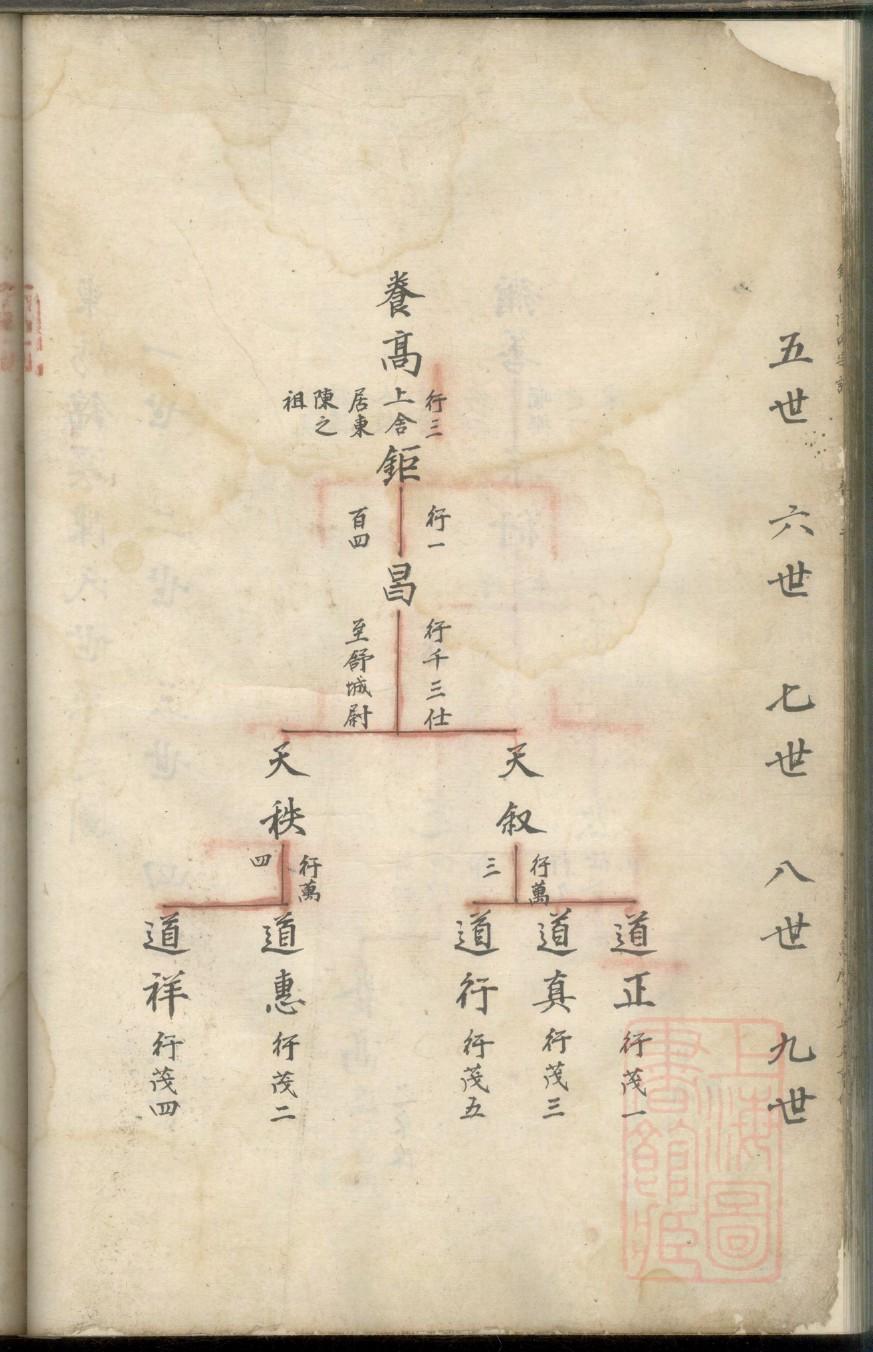 五世 六世 七世 八世 九世
養高
行三
上舍
居東
陳之
祖
鉅
行一
百四
昌
行千三仕
至舒城尉
天叙
行萬
三
天秩
行萬
四
道正 行茂一
道真 行茂三
道行 行茂五
道惠 行茂二
道祥 行茂四
上海圖
書館藏